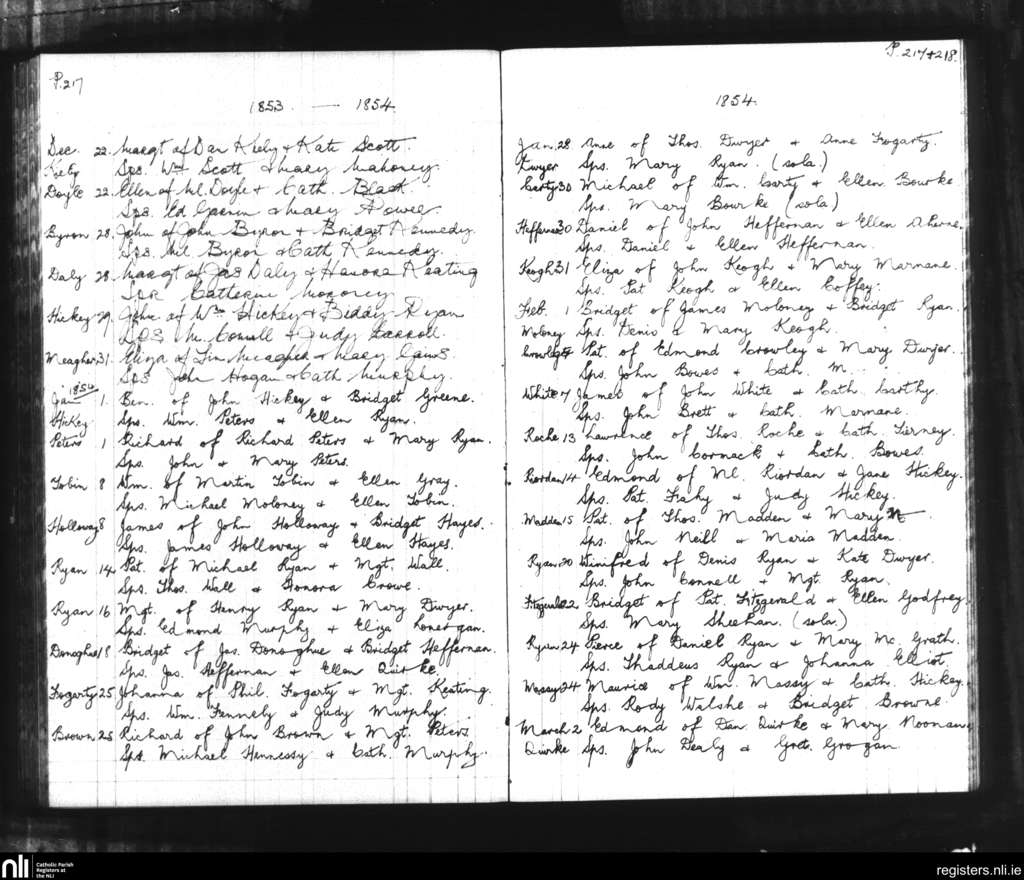 P. 217
1853 — 1854
Dec. 22. Margt of Dan Kiely & Kate Scott.
Kiely Sps. Wm Scott & Mary Mahoney.
Doyle 22. Ellen of Ml. Doyle & Cath. Black
Sps. Ed & Mary Power.
Byron 28. John of John Byron & Bridget Kennedy.
Sps. Ml. Byron & Cath Kennedy.
Daly 28. Margt of Jas Daly & Hanora Keating
Sps Catherine Moroney
Hickey 29. John of Wm Hickey & Biddy Ryan
Sps M. Connell & Judy Carroll.
Meagher 31. Eliza of Tim Meagher & Mary
Sps John Hogan & Cath Murphy.
1854
Jan 1. Ben. of John Hickey & Bridget Greene.
Hickey Sps. Wm. Peters & Ellen Ryan.
Peters 1 Richard of Richard Peters & Mary Ryan.
Sps. John & Mary Peters.
Tobin 8 Wm. of Martin Tobin & Ellen Gray.
Sps. Michael Moloney & Ellen Tobin.
Holloway 8 James of John Holloway & Bridget Hayes.
Sps. James Holloway & Ellen Hayes.
Ryan 14 Pat. of Michael Ryan & Mgt. Wall.
Sps. Thos. Wall & Honora Crowe.
Ryan 16 Mgt. of Henry Ryan & Mary Dwyer.
Sps. Edmond Murphy & Eliza Lonergan.
Donoghue 18 Bridget of Jas. Donoghue & Bridget Heffernan.
Sps. Jas. Heffernan & Ellen Quirke.
Fogarty 25. Johanna of Phil. Fogarty & Mgt. Keating.
Sps. Wm. Fennely & Judy Murphy.
Brown 25 Richard of John Brown & Mgt. Peters
Sps. Michael Hennessy & Cath. Murphy.
P. 217+218.
1854.
Jan. 28 Anne of Thos. Dwyer & Anne Frogarty.
Dwyer Sps. Mary Ryan. (sola.)
Carty 30 Michael of Wm. Carty & Ellen Bourke
Sps. Mary Bourke (sola)
Heffernan 30 Daniel of John Heffernan & Ellen Aherne.
Sps. Daniel & Ellen Heffernan.
Keogh 31 Eliza of John Keogh & Mary Marnane.
Sps. Pat Keogh & Ellen Coffey.
Feb. 1 Bridget of James Moloney & Bridget Ryan.
Moloney Sps. Denis & Mary Keogh.
Crowley Pat. of Edmond Crowley & Mary Dwyer.
Sps. John Bowes & Cath. M
White 7 James of John White & Cath. Carthy.
Sps. John Brett & Cath. Marnane.
Roche 13 Lawrence of Thos. Roche & Cath. Tierney.
Sps. John Cormack & Cath. Bowes.
Riordan 14 Edmond of Ml. Riordan & Jane Hickey.
Sps. Pat. Fahy & Judy Hickey.
Madden 15 Pat. of Thos. Madden & Mary
Sps. John Neill & Maria Madden.
Ryan 20 Winifred of Denis Ryan & Kate Dwyer.
Sps. John Connell & Mgt. Ryan.
Fitzgerald 22 Bridget of Pat. Fitzgerald & Ellen Godfrey.
Sps. Mary Sheehan. (sola.)
Ryan 24 Pierce of Daniel Ryan & Mary Mc. Grath.
Sps. Thaddeus Ryan & Johanna Elliot.
Massy 24 Maurice of Wm. Massy & Cath. Hickey.
Sps. Rody Walshe & Bridget Browne.
March 2 Edmond of Dan. Quirke & Mary Noonan
Quirke Sps. John Dealy & Gret. Grogan
nli
Catholic Parish
Registers at
the NLI
registers.nli.ie